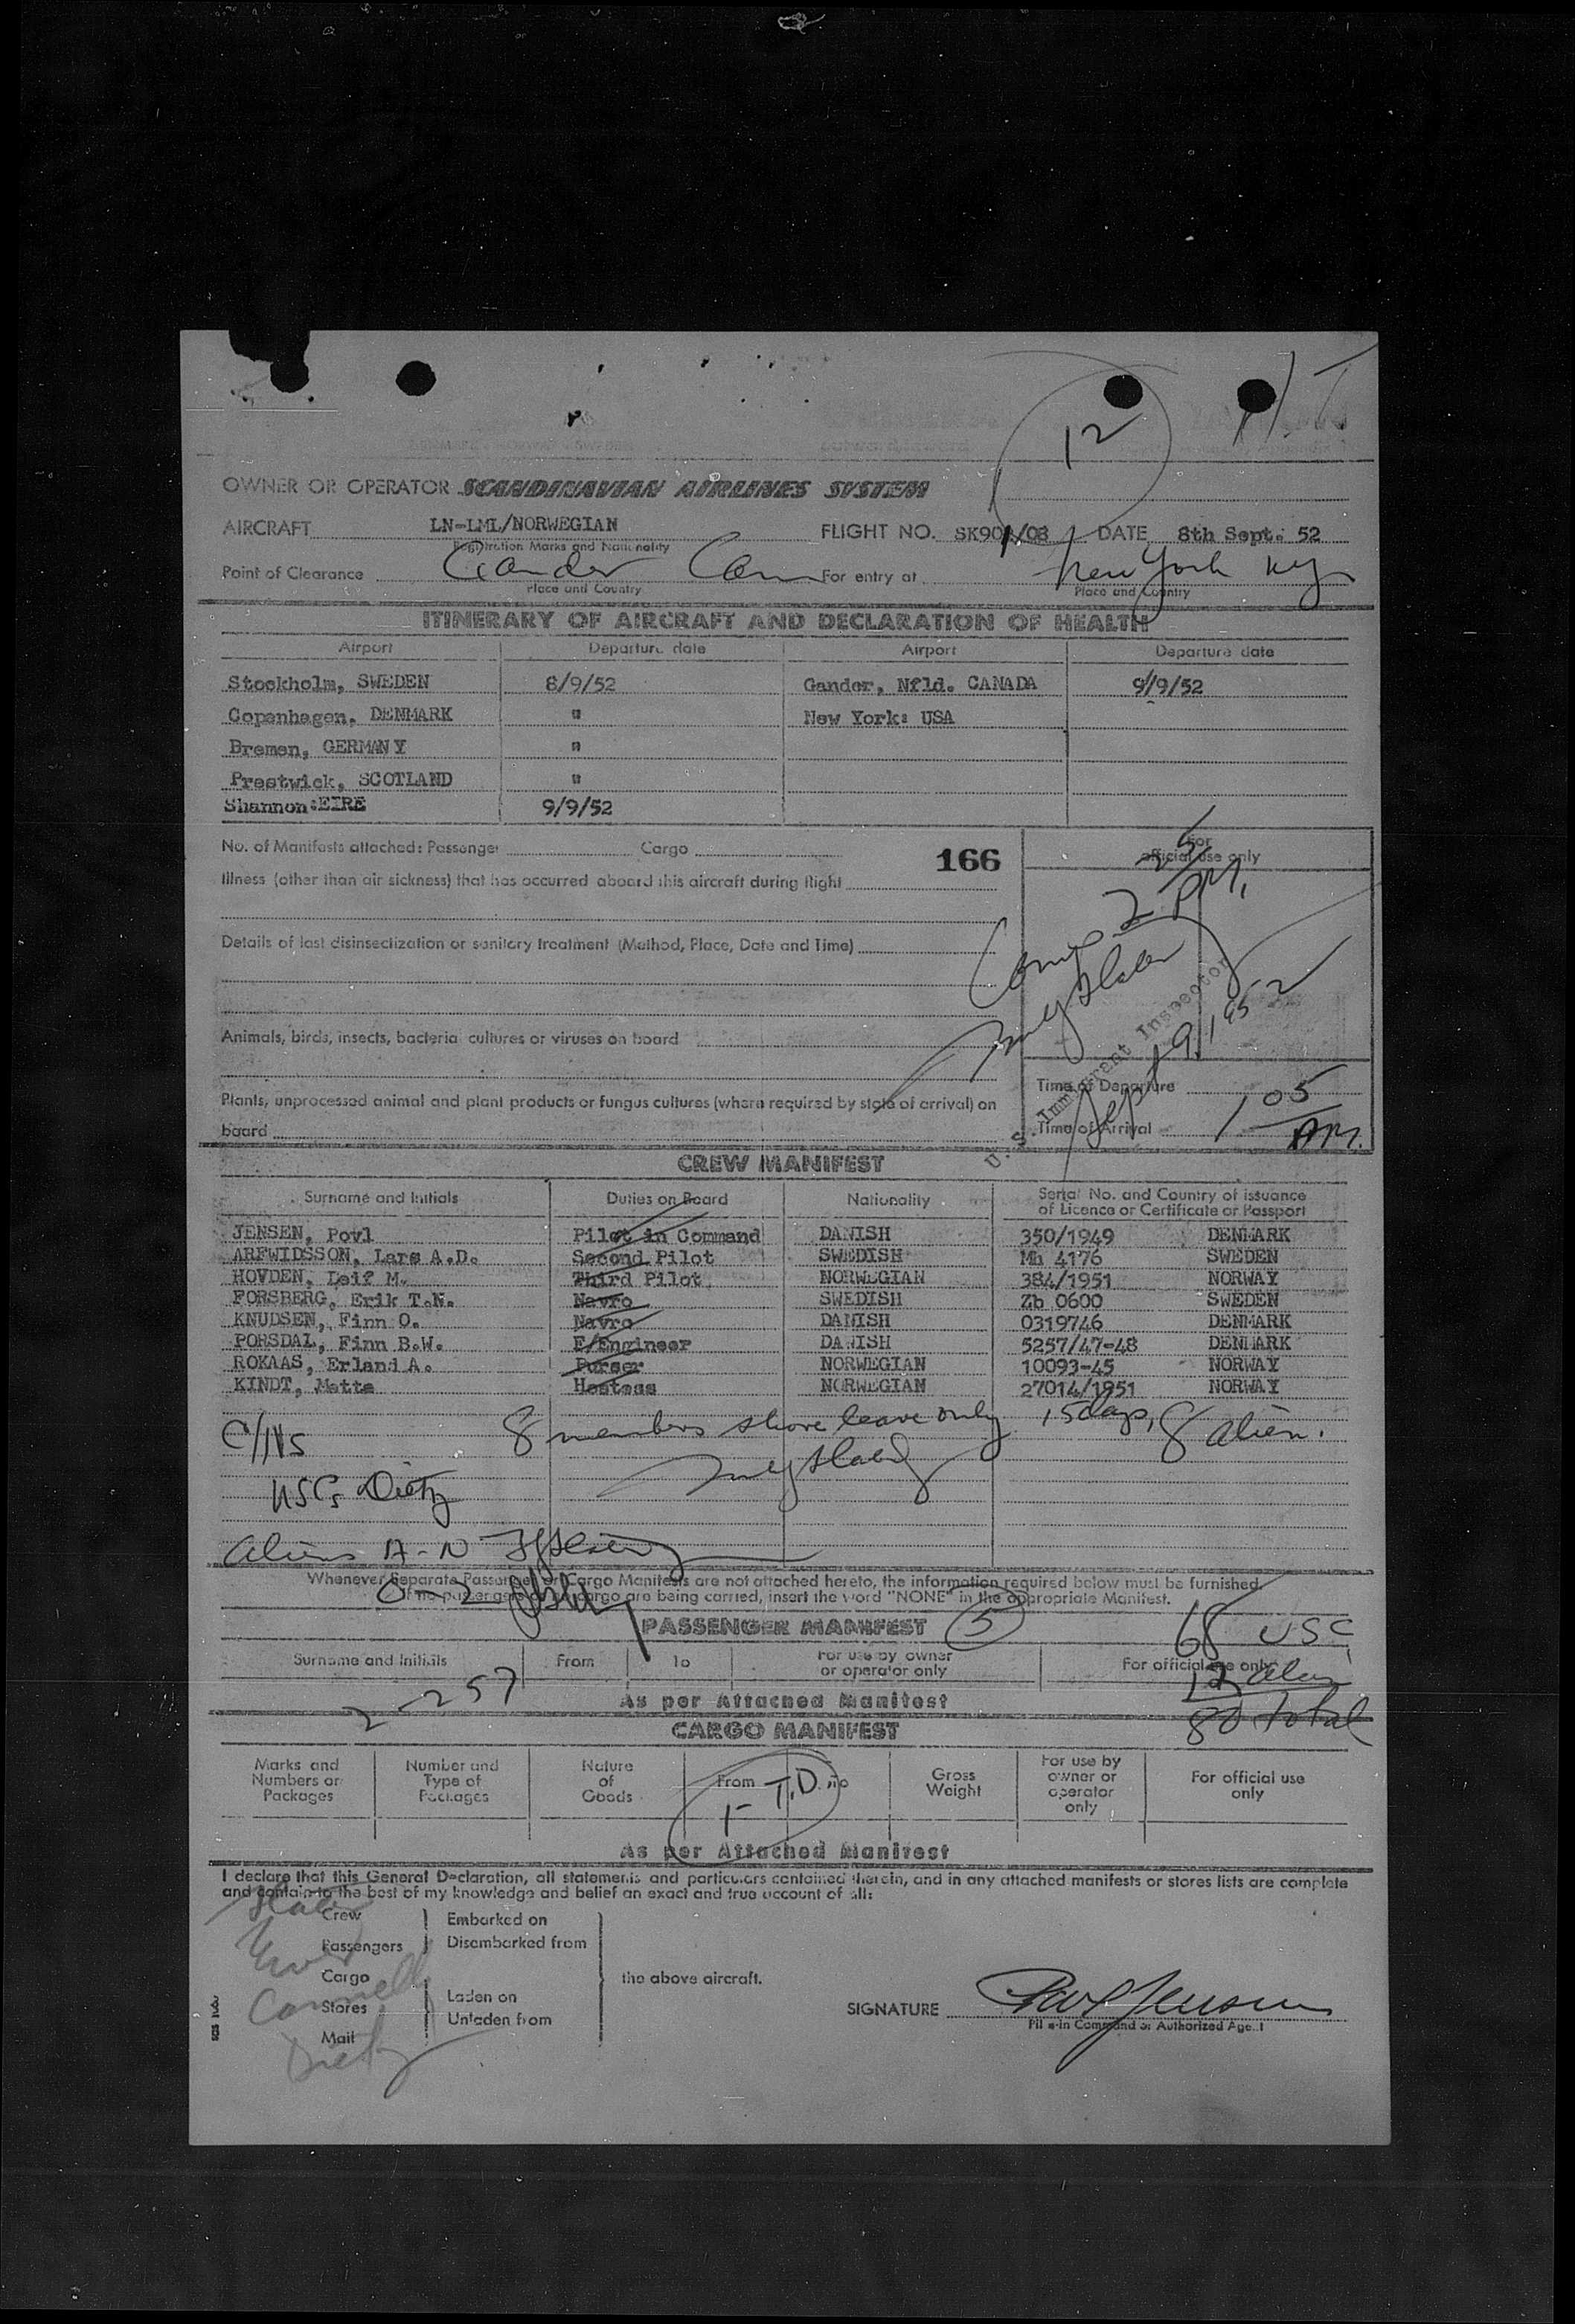 12
OWNER OR OPERATOR SCANDINAVIAN AIRLINES SYSTEM
AIRCRAFT LN-LML/NORWEGIAN FLIGHT NO. SK901/08 DATE 8th Sept. 52
Registration Marks and Nationality
Point of Clearance Gander Can For entry at New York NY
Place and Country Place and Country
ITINERARY OF AIRCRAFT AND DECLARATION OF HEALTH
Airport Departure date Airport Departure date
Stockholm, SWEDEN 8/9/52 Gander, Nfld. CANADA 9/9/52
Copenhagen, DENMARK " New York: USA
Bremen, GERMANY "
Prestwick, SCOTLAND "
Shannon:EIRE 9/9/52
No. of Manifests attached: Passenger Cargo 166 For official use only
Illness (other than air sickness) that has occurred aboard this aircraft during flight
2 PM.
Details of last disinsectization or sanitary treatment (Method, Place, Date and Time)
U.S. Immigrant Inspector
Sept 9, 1952
Animals, birds, insects, bacteria cultures or viruses on board
Time of Departure
Plants, unprocessed animal and plant products or fungus cultures (where required by state of arrival) on
board
Time of Arrival 1 05 PM.
CREW MANIFEST
Surname and Initials Duties on Board Nationality Serial No. and Country of issuance of Licence or Certificate or Passport
JENSEN, Povl Pilot in Command DANISH 350/1949 DENMARK
ARFWIDSSON, Lars A.D. Second Pilot SWEDISH Mh 4176 SWEDEN
HOVDEN, Leif M. Third Pilot NORWEGIAN 384/1951 NORWAY
FORSBERG, Erik T.N. Navro SWEDISH Zb 0600 SWEDEN
KNUDSEN, Finn O. Navro DANISH 0319746 DENMARK
PORSDAL, Finn B.W. E/Engineer DANISH 5257/47-48 DENMARK
ROKAAS, Erland A. Purser NORWEGIAN 10093-45 NORWAY
KINDT, Mette Hostess NORWEGIAN 27014/1951 NORWAY
8 members shore leave only 15 days, 8 alien.
USCs Dietz
Aliens A-N
O-Z
Whenever Separate Passenger or Cargo Manifests are not attached hereto, the information required below must be furnished.
If no passengers or cargo are being carried, insert the word "NONE" in the appropriate Manifest.
PASSENGER MANIFEST 5
68 USC
Surname and Initials From To For use by owner or operator only For official use only
12 alien
2-257 As per Attached Manifest
80 total
CARGO MANIFEST
Marks and Numbers on Packages Number and Type of Packages Nature of Goods From To Gross Weight For use by owner or operator only For official use only
1-T.D.
As per Attached Manifest
I declare that this General Declaration, all statements and particulars contained therein, and in any attached manifests or stores lists are complete
and contain to the best of my knowledge and belief an exact and true account of all:
Slater
Crew Embarked on
Passengers Disembarked from
Cargo the above aircraft.
Connelly
Stores Laden on
Unladen from
Mail
Dietz
SIGNATURE Povl Jensen
Pilot-in Command or Authorized Agent